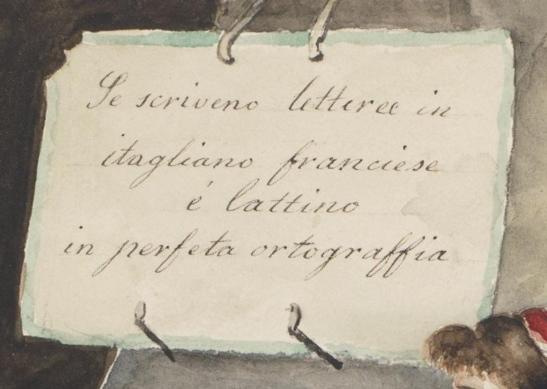 Se scriveno letteree in
itagliano franciese
é lattino
in perfeta ortograffia